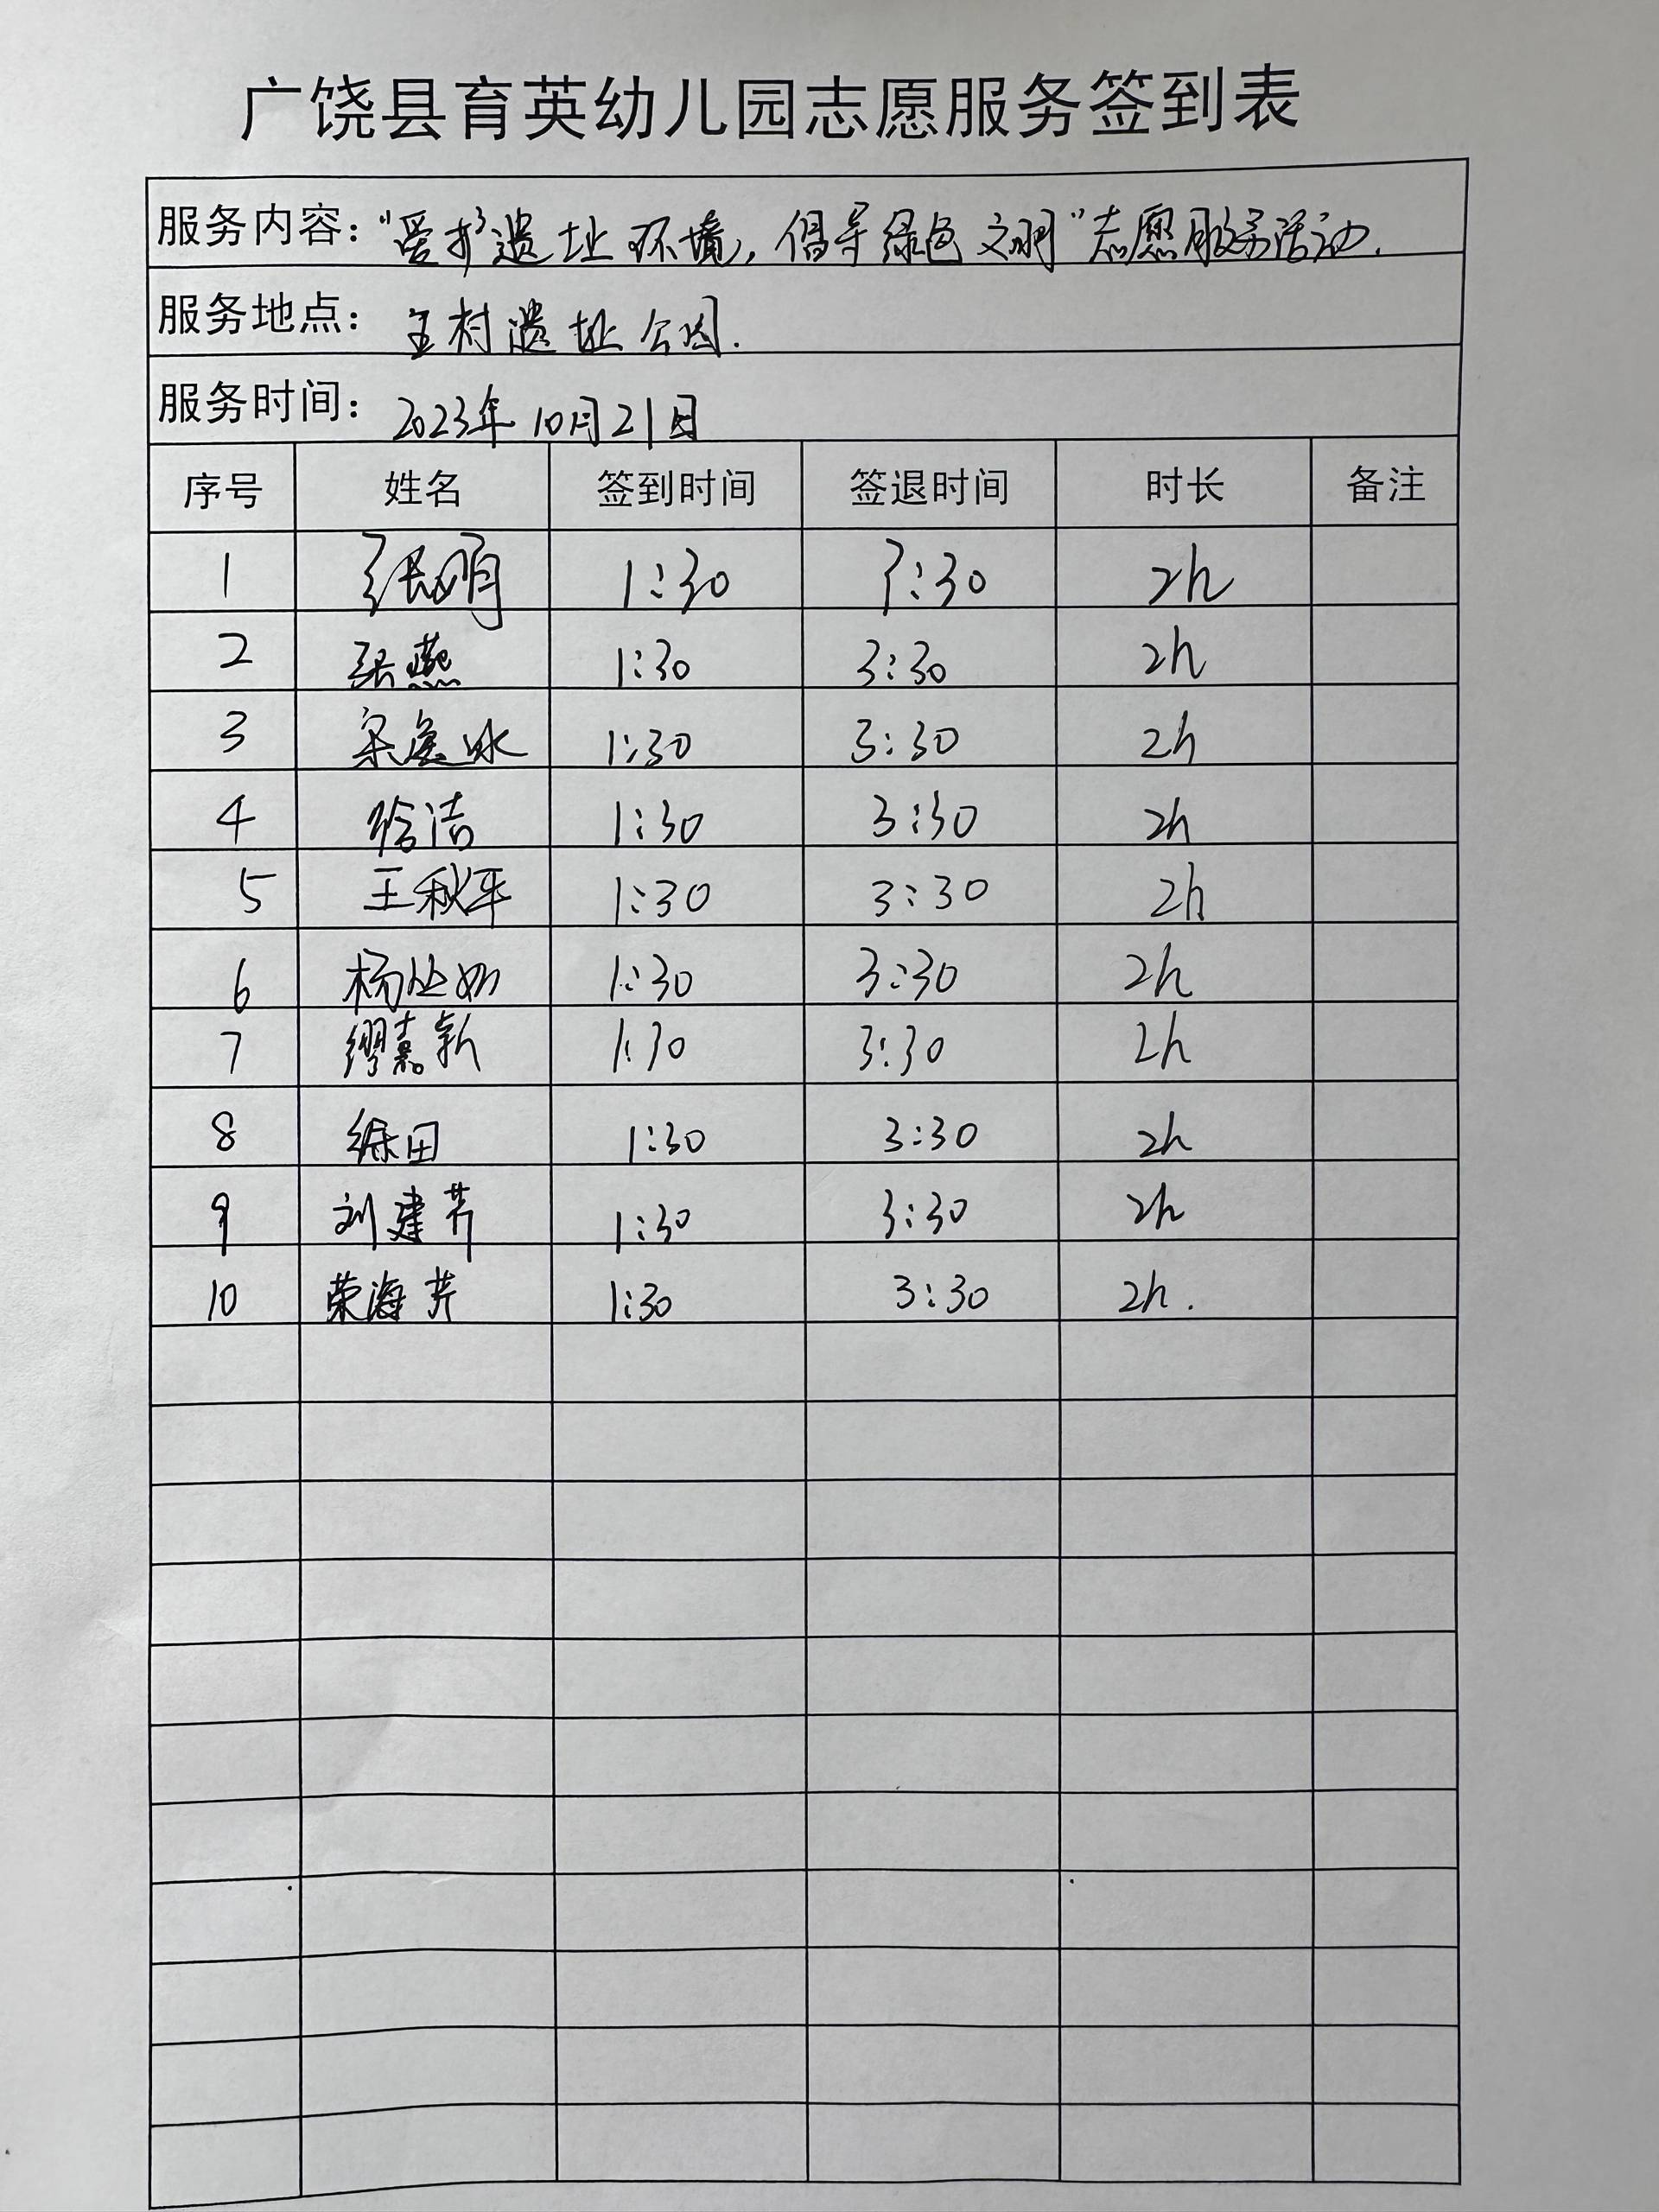 广饶县育英幼儿园志愿服务签到表
服务内容：“爱护遗址环境，倡导绿色文明”志愿服务活动.
服务地点：主村遗址公园.
服务时间：2023年10月21日
序号 姓名 签到时间 签退时间 时长 备注
1 张明 1:30 3:30 2h
2 张燕 1:30 3:30 2h
3 宋 冰 1:30 3:30 2h
4 徐洁 1:30 3:30 2h
5 王秋平 1:30 3:30 2h
6 杨 1:30 3:30 2h
7 缪嘉新 1:30 3:30 2h
8 田 1:30 3:30 2h
9 刘建芹 1:30 3:30 2h
10 荣海芹 1:30 3:30 2h.